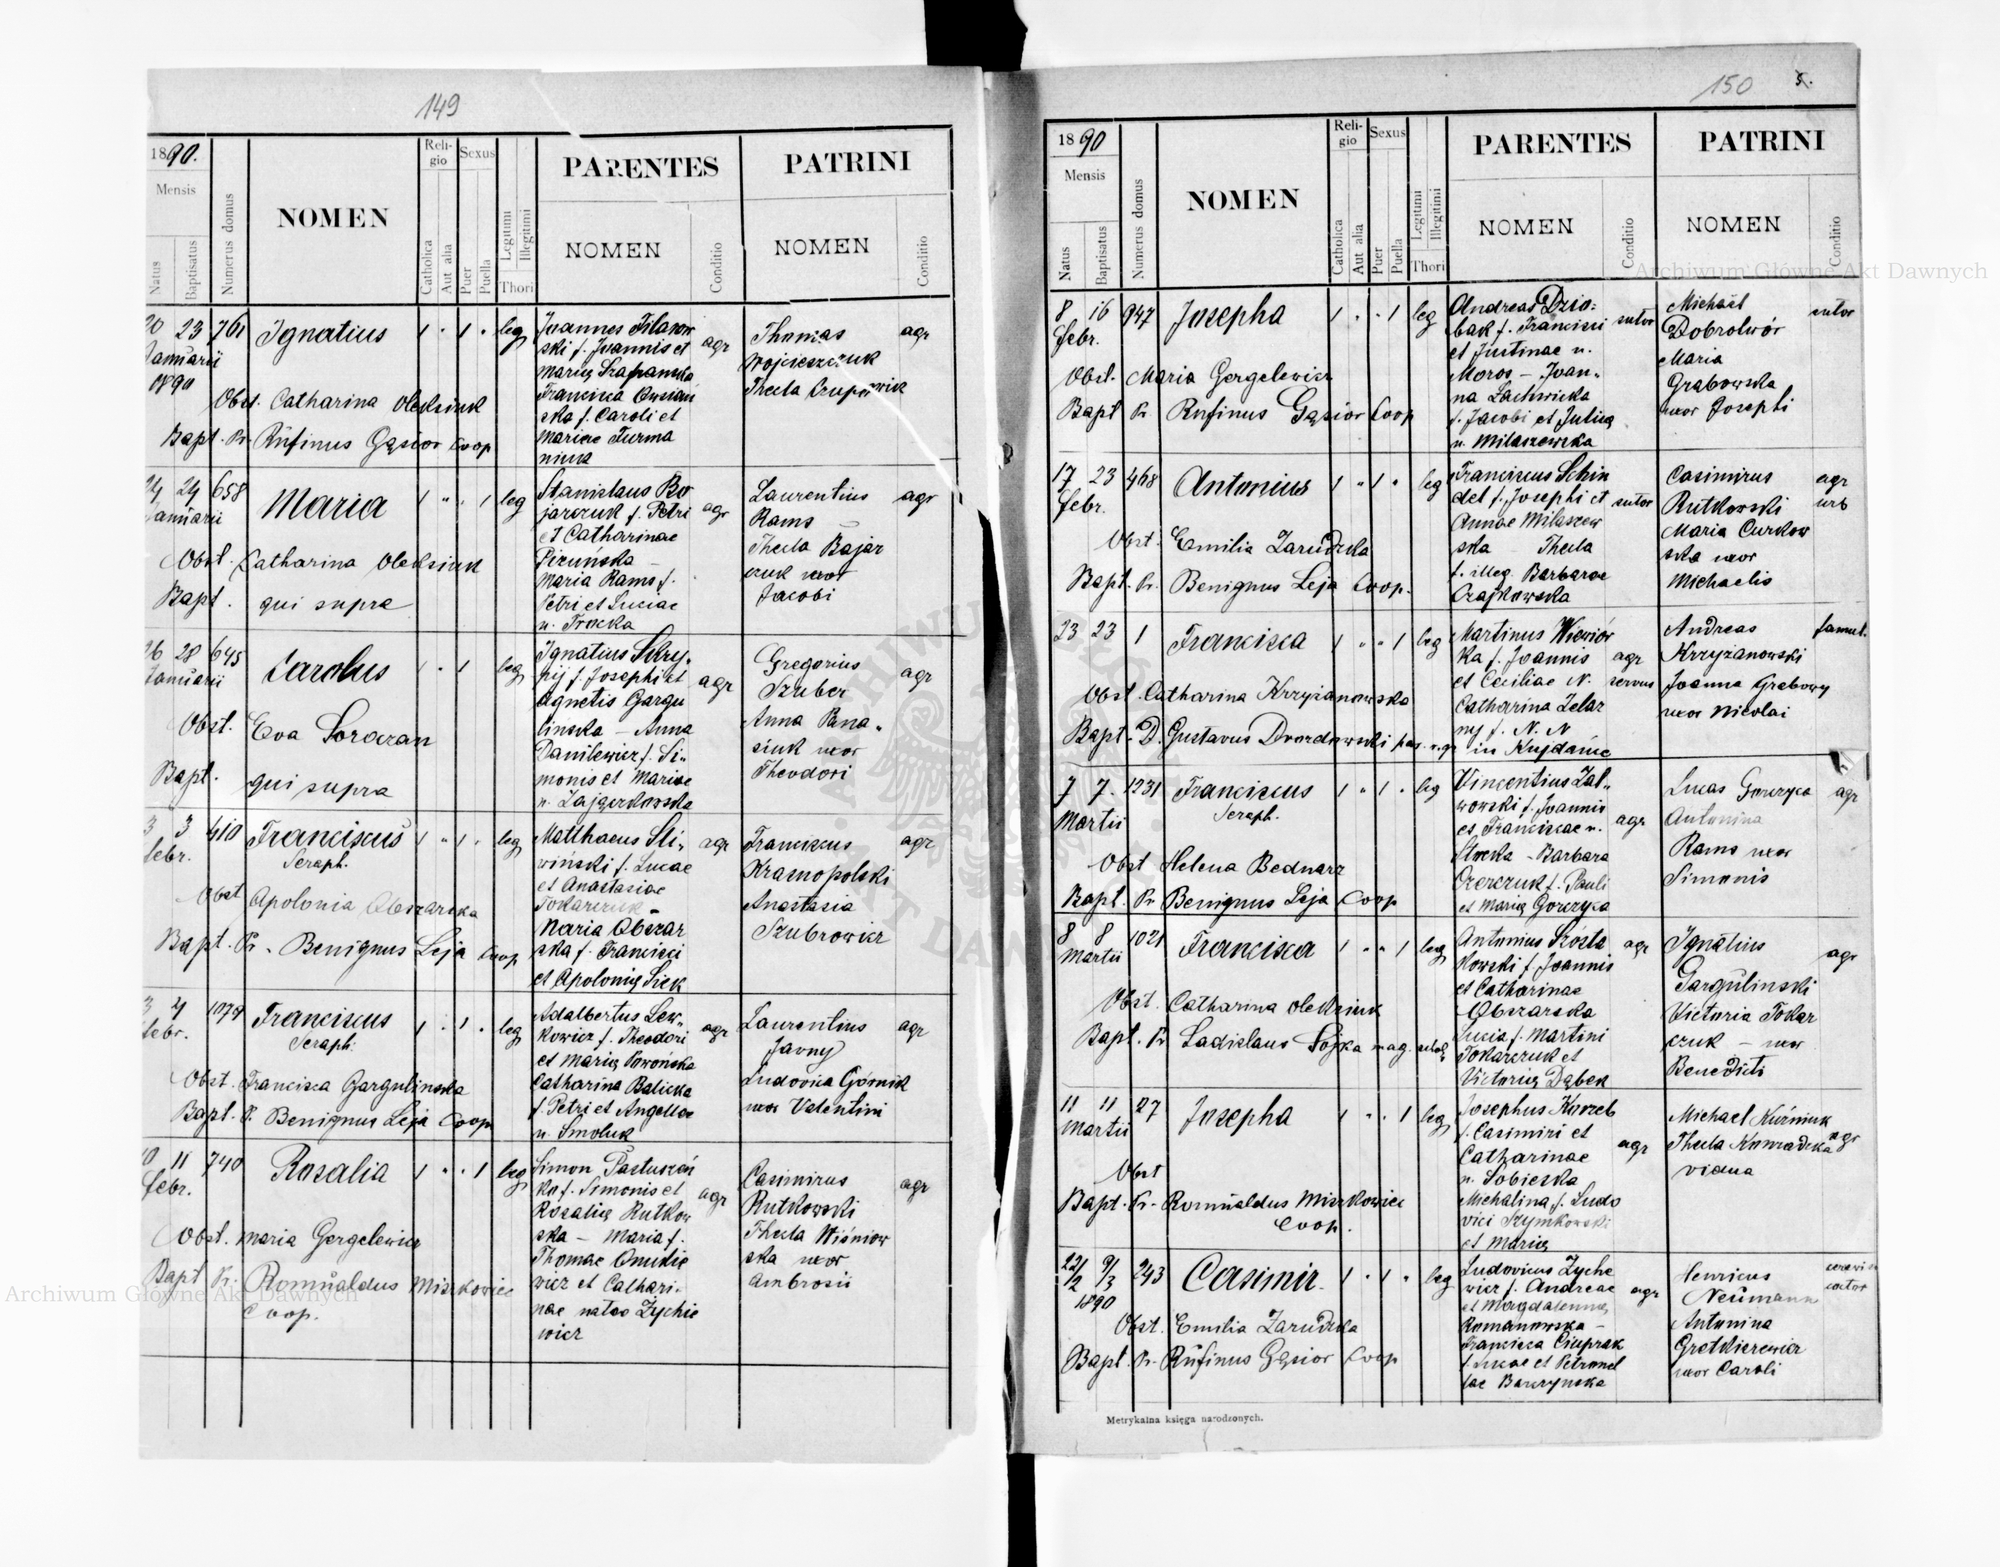 149
1890.
Mensis
Natus
Baptisatus
Numerus domus
NOMEN
Religio
Catholica
Aut alia
Sexus
Puer
Puella
Legitimi
Illegitimi
Thori
PARENTES
NOMEN
Conditio
PATRINI
NOMEN
Conditio
20 23 761 Ignatius 1 " 1 " leg
Januarii
1890
Obst. Catharina Oleksiuk
Bapt. Pr. Rufinus Gąsior Coop
Joannes Filanow
ski f. Joannis et agr
Mariae Szafranska
Francisca Owsian
ska f. Caroli et
Mariae Furma
niuk
Thomas agr
Wojcieszczuk
Thecla
24 24 658 Maria 1 " " 1 leg
Januarii
Obst. Catharina Oleksiuk
Bapt. qui supra
Stanislaus Bo
jarczuk f. Petri agr
et Catharinae
Piruńska –
Maria Rams f.
Petri et Luciae
n. Trocka
Laurentius agr
Rams –
Thecla Bajar
czuk uxor
Jacobi
26 28 645 Carolus 1 " 1 leg
Januarii
Obst. Eva Soroczan
Bapt. qui supra
Ignatius Skry„
pij f. Josephi et agr
Agnetis Gargu
linska – Anna
Danilewicz f. Si„
monis et Mariae
n. Zajączkowska
Gregorius agr
Szuber
Anna Pana„
siuk uxor
Theodori
3 3 410 Franciscus 1 " 1 " leg
febr. Seraph.
Obst Apolonia Obszarska
Bapt. Pr. Benignus Leja Coop
Matthaeus Sli„ agr
wiński f. Lucae
et Anastasiae
Tokarczuk –
Maria Obszar
ska f. Francisci
et Apoloniae Siek
Franciscus agr
Krasnopolski
Anastasia
Szubrowicz
3 4 1079 Franciscus 1 " 1 " leg
febr. Seraph.
Obst. Francisca Gargulinska
Bapt. P. Benignus Leja Coop
Adalbertus Lew„
kowicz f. Theodori agr
et Mariae Woronska
Catharina Balicka
f. Petri et Angelae
n. Smoluk
Laurentius agr
Jawny
Ludovica Górnik
uxor Valentini
10 11 740 Rosalia 1 " " 1 leg
febr.
Obst. Maria Gergelewicz
Bapt Pr. Romualdus Miszkowicz
Coop.
Simon Pastuszeń
ko f. Simonis et agr
Rosaliae Rutkow
ska – Maria f.
Thomae Omidie
wicz et Cathari„
nae natae Zychie
wicz
Casimirus agr
Rutkowski
Thecla Wiśniow
ska uxor
Ambrosii
150 5.
1890
Mensis
Natus
Baptisatus
Numerus domus
NOMEN
Religio
Catholica
Aut alia
Sexus
Puer
Puella
Legitimi
Illegitimi
Thori
PARENTES
NOMEN
Conditio
PATRINI
NOMEN
Conditio
8 16 947 Josepha 1 " " 1 leg
febr.
Obst. Maria Gergelewicz
Bapt Pr. Rufinus Gąsior Coop
Andreas Dzio:
bak f. Francisci sutor
et Justinae n.
Moros – Joan„
na Lachwicka
f. Jacobi et Juliae
n. Milaszewska
Michael sutor
Dobrotwór
Maria
Grabowska
uxor Josephi
17 23 468 Antonius 1 " 1 " leg
febr.
Obst. Emilia Zarudzka
Bapt. Pr. Benignus Leja Coop.
Franciscus Schin
del f. Josephi et sutor
Annae Milaszew
ska – Thecla
f. illeg. Barbarae
Czajkowska
Casimirus agr
Rutkowski urb
Maria Curkow
ska uxor
Michaelis
23 23 1 Francisca 1 " " 1 leg
Obst. Catharina Krzyżanowska
Bapt. D. Gustavus Drozdowski par. in Kujdańce
Martinus Wiewiór
ka f. Joannis agr
et Ceciliae N. servus
Catharina Zelaz
ny f. N. N
Andreas famul.
Krzyżanowski
Joanna Grabowy
uxor Nicolai
7 7. 1231 Franciscus 1 " 1 " leg
Martii Seraph.
Obst Helena Bednarz
Bapt. Pr. Benignus Leja Coop
Vincentius Zal„
wowski f. Joannis
et Franciscae n. agr
Strocka – Barbara
Czerczuk f. Pauli
et Mariae Gorczyca
Lucas Gorczyca agr
Antonina
Rams uxor
Simonis
8 8 1021 Francisca 1 " " 1 leg
Martii
Obst. Catharina Oleksiuk
Bapt. Pr Ladislaus Sojka mag. schol.
Antonius Szosta agr
kowski f. Joannis
et Catharinae
Obszarska
Lucia f. Martini
Tokarczuk et
Victoriae Dąbek
Ignatius agr
Gargulinski
Victoria Tokar
czuk – uxor
Benedicti
11 11 27 Josepha 1 " " 1 leg
Martii
Obst
Bapt. Pr. Romualdus Miszkowicz
Coop.
Josephus Korzeb
f. Casimiri et
Catharinae agr
n. Sobieska
Michalina f. Ludo
vici Szymkowski
et Mariae
Michael Kuśniuk
Thecla Konradzka agr
vidua
22/2 9/3 243 Casimir. 1 " 1 " leg
1890
Obst. Emilia Zarudzka
Bapt. Pr. Rufinus Gąsior Coop
Ludovicus Zyche
wicz f. Andreae agr
et Magdalenae
Romanowska –
Francisca Ciuprak
f. Lucae et Petronel
lae Barczynska
Henricus
Neümann
Antonina
Grotkierewicz
uxor Caroli
Metrykalna księga narodzonych.
Archiwum Główne Akt Dawnych
Archiwum Główne Akt Dawnych